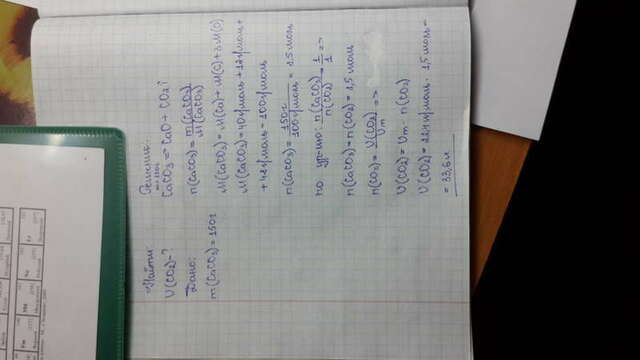 Fm
Md
No
Lr
Найти:
V(CO2)-?
Дано:
m(CaCO3)=150г
Решение
m=150г
CaCO3 = CaO + CO2↑
n(CaCO3) = m(CaCO3) / M(CaCO3)
M(CaCO3) = M(Ca) + M(C) + 3M(O)
M(CaCO3) = 40г/моль + 12г/моль +
+ 48г/моль = 100г/моль
n(CaCO3) = 150г / 100г/моль = 1,5 моль
по ур-ию: n(CaCO3) / n(CO2) = 1 / 1 =>
n(CaCO3) = n(CO2) = 1,5 моль
n(CO2) = V(CO2) / Vm =>
V(CO2) = Vm · n(CO2)
V(CO2) = 22,4л/моль · 1,5моль =
= 33,6л